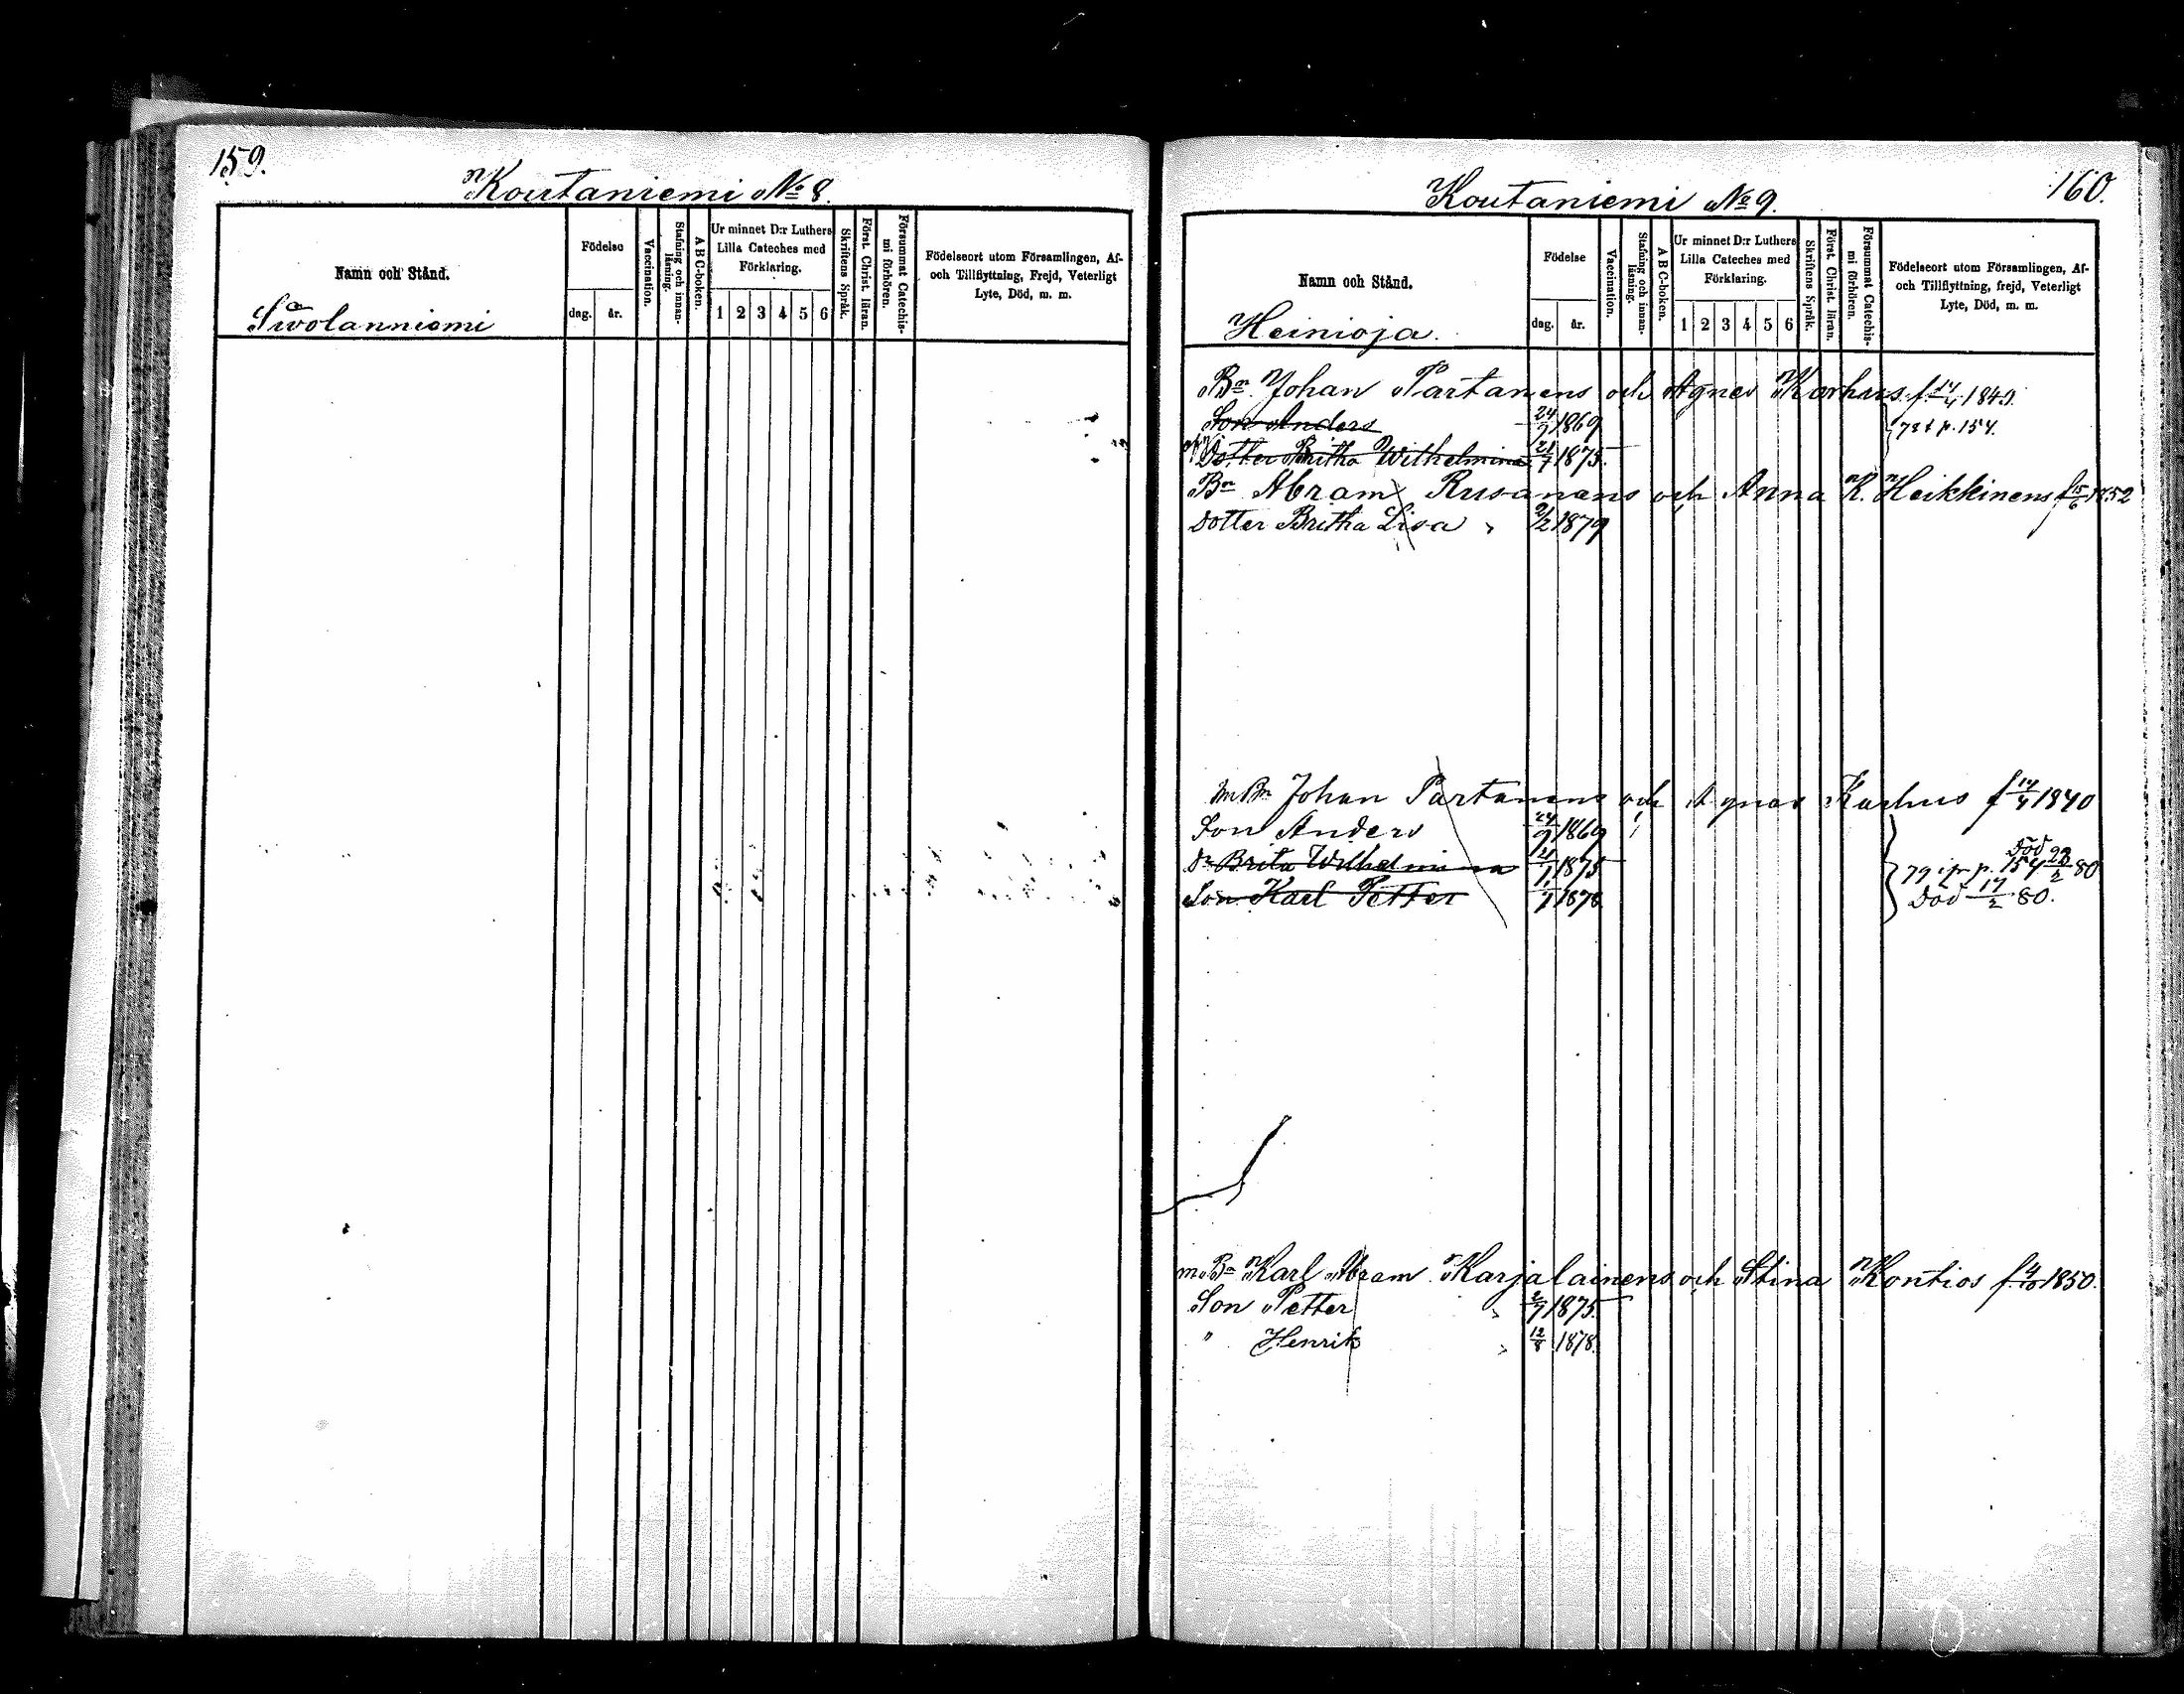 159.
Koutaniemi No 8.
Namn och Stånd.
Födelse
dag. år.
Vaccination.
Stafning och innanläsning.
A B C-boken.
Ur minnet D:r Luthers
Lilla Cateches med
Förklaring.
1 2 3 4 5 6
Skriftens Språk.
Först. Christ. läran.
Försummat Catechismi förhören.
Födelseort utom Församlingen, Af-
och Tillflyttning, Frejd, Veterligt
Lyte, Död, m. m.
160.
Koutaniemi No 9.
Namn och Stånd.
Heinioja.
Födelse
dag. år.
Vaccination.
Stafning och innanläsning.
A B C-boken.
Ur minnet D:r Luthers
Lilla Cateches med
Förklaring.
1 2 3 4 5 6
Skriftens Språk.
Först. Christ. läran.
Försummat Catechismi förhören.
Födelseort utom Församlingen, Af-
och Tillflyttning, frejd, Veterligt
Lyte, Död, m. m.
Bn Johan Partanens och Agnes Karhus f. 14/4 1840.
Son Anders 24/9 1869 78 t p. 154.
Dotter Britha Wilhelmina 21/1 1875.
Bn Abram Rusanens och Anna K. Heikkinens f 15/6 1852
Dotter Britha Lisa 2/2 1879
m Bn Johan Partanens och Agnes Karhus f 14/4 1840
Son Anders 24/9 1869
Dr Brita Wilhelmina 21/1 1875 död 22/2 80
Son Karl Petter 1878 död 17/2 80.
m. Bn Karl Abram Karjalainens och Stina Kontios f 4/10 1850.
Son Petter 2/7 1875.
" Henrik 12/8 1878.